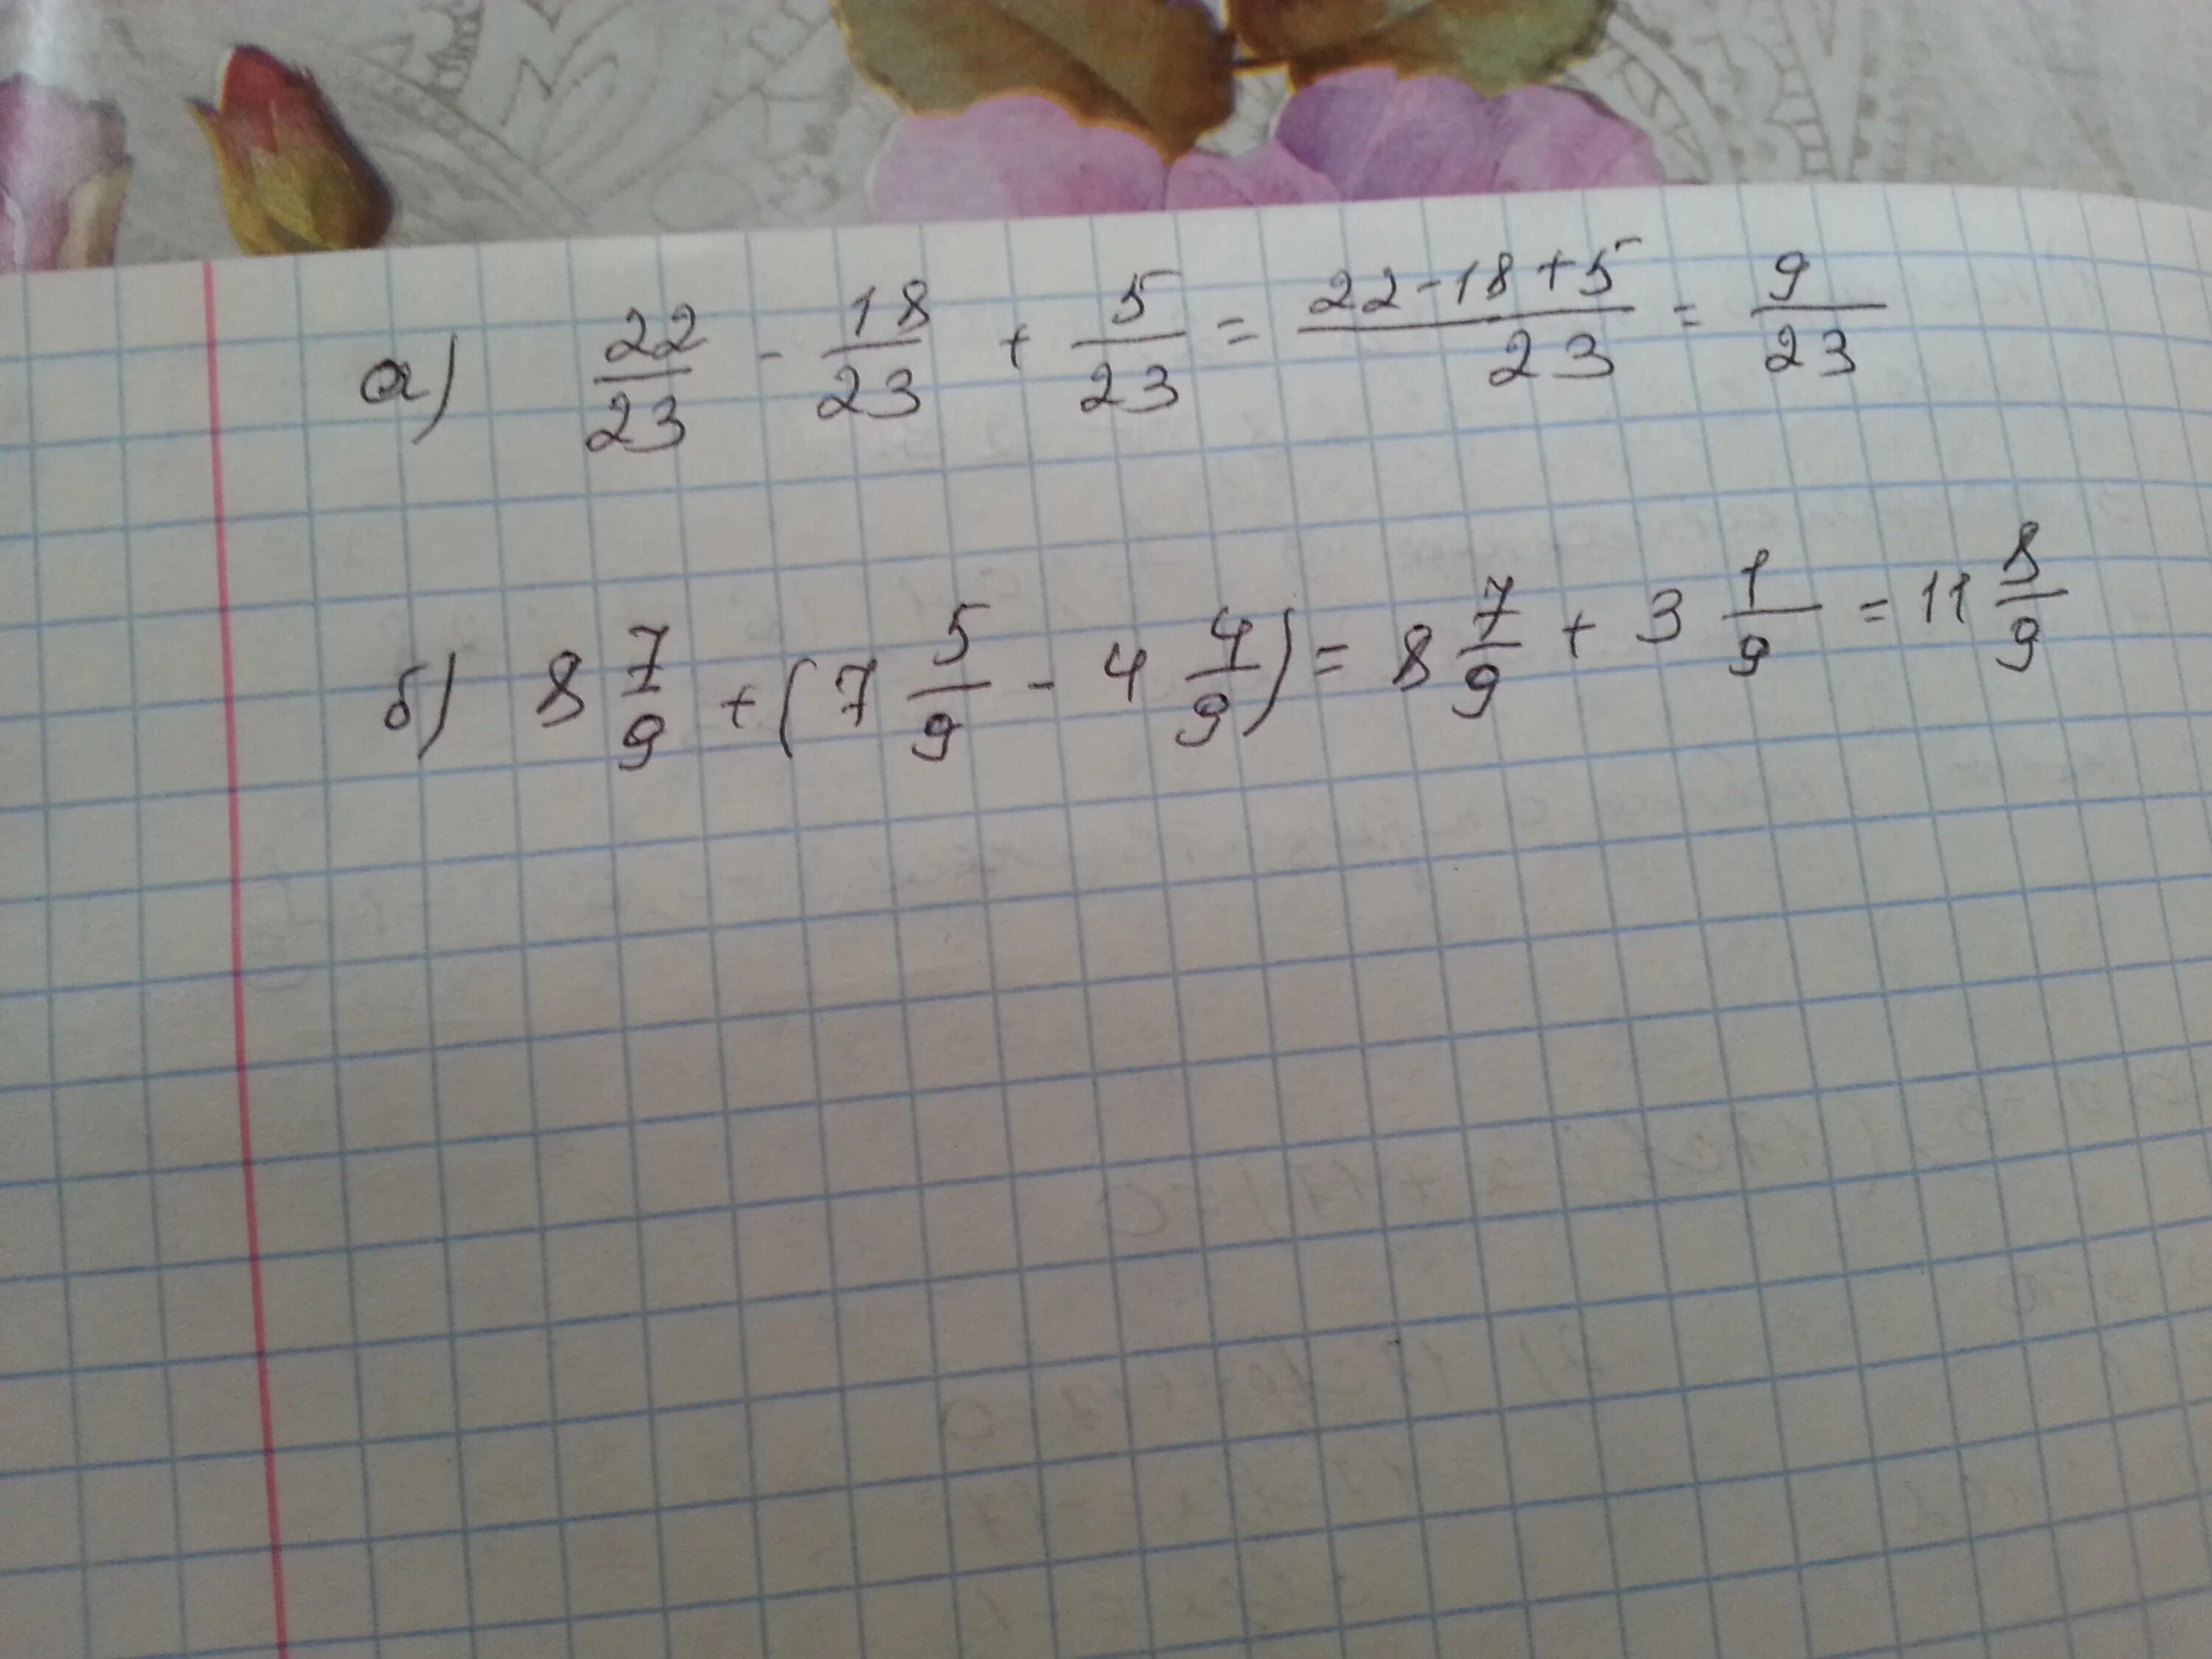 а) 22/23 - 18/23 + 5/23 = (22-18+5)/23 = 9/23
б) 8 7/9 + (7 5/9 - 4 4/9) = 8 7/9 + 3 1/9 = 11 8/9